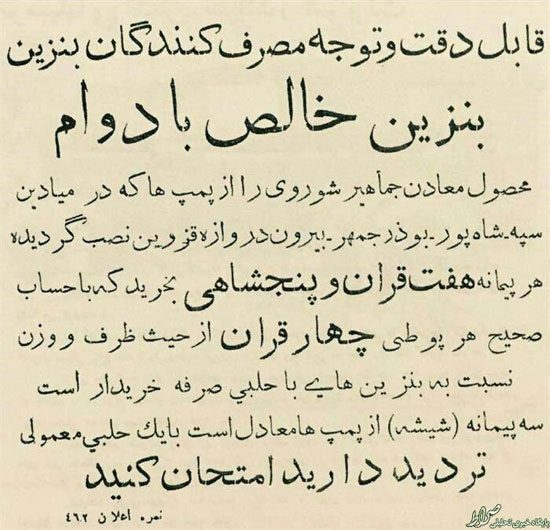 قابل دقت و توجه مصرف کنندگان بنزین
بنزین خالص بادوام
محصول معادن جماهیر شوروی را از پمپ ها که در میادین
سپه ـ شاه پور ـ بوذرجمهر ـ بیرون دروازه قزوین نصب گردیده
هر پیمانه هفت قران و پنجشاهی بخرید که با حساب
صحیح هر پوطی چهار قران از حیث ظرف و وزن
نسبت به بنزین های با حلبی صرفه خریدار است
سه پیمانه (شیشه) از پمپ ها معادل است با یك حلبی معمولی
تردید دارید امتحان کنید
نمره اعلان ۴۶۲
صراط
پایگاه خبری تحلیلی